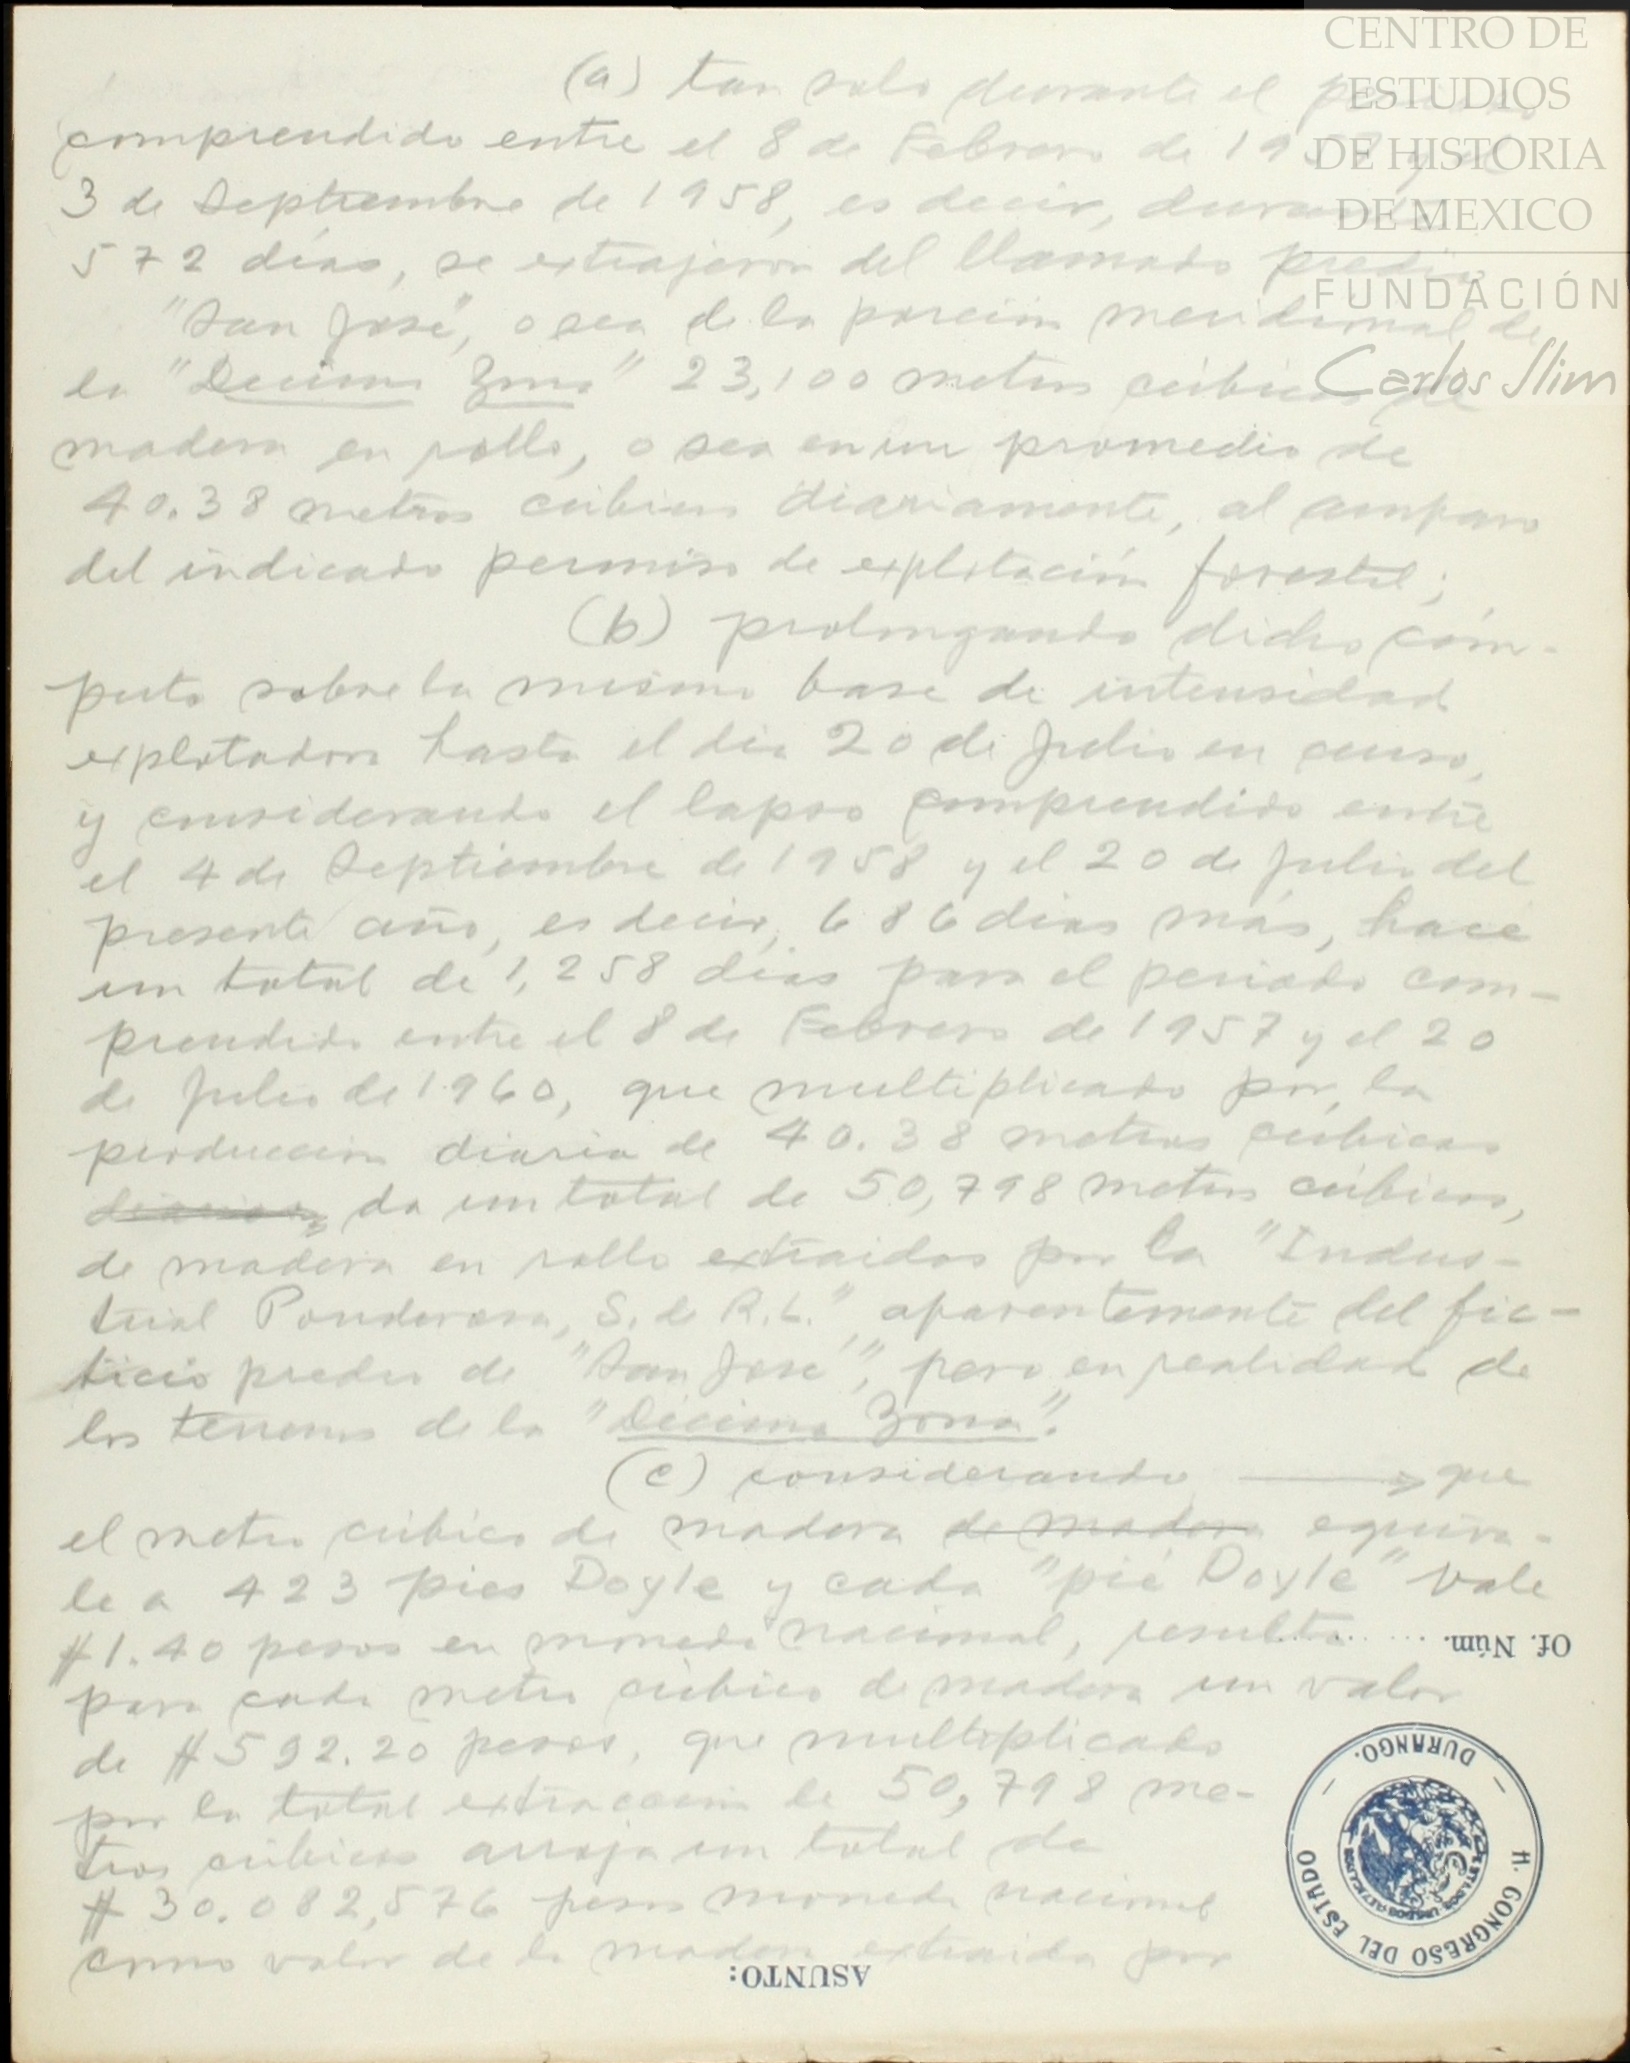 CENTRO DE
ESTUDIOS
DE HISTORIA
DE MEXICO
FUNDACIÓN
Carlos Slim
(a) tan solo durante el periodo
comprendido entre el 8 de Febrero de 1957 y el
3 de Septiembre de 1958, es decir, durante
572 días, se extrajeron del llamado predio
"San José", o sea de la porción meridional de
la "Decima Zona" 23,100 metros cúbicos de
madera en rollo, o sea en un promedio de
40.38 metros cúbicos diariamente, al amparo
del indicado permiso de explotación forestal;
(b) prolongando dicho cóm-
puto sobre la misma base de intensidad
explotadora hasta el día 20 de Julio en curso,
y considerando el lapso comprendido entre
el 4 de Septiembre de 1958 y el 20 de Julio del
presente año, es decir, 686 días más, hace
un total de 1,258 días para el periodo com-
prendido entre el 8 de Febrero de 1957 y el 20
de Julio de 1960, que multiplicado por la
producción diaria de 40.38 metros cúbicos
diarios, da un total de 50,798 metros cúbicos,
de madera en rollo extraidos por la "Indus-
trial Ponderosa, S. de R.L.", aparentemente del fic-
ticio predio de "San José", pero en realidad de
los terrenos de la "Décima Zona".
(c) considerando que
el metro cúbico de madera de madera equiva-
le a 423 pies Doyle y cada "pié Doyle" vale
$1.40 pesos en moneda nacional, resulta
Of. Núm.
para cada metro cúbico de madera un valor
de $592.20 pesos, que multiplicado
por la total extracción de 50,798 me-
tros cúbicos arroja un total de
$30.082,576 pesos moneda nacional
como valor de la madera extraida por
ASUNTO:
H. CONGRESO DEL ESTADO
DURANGO.